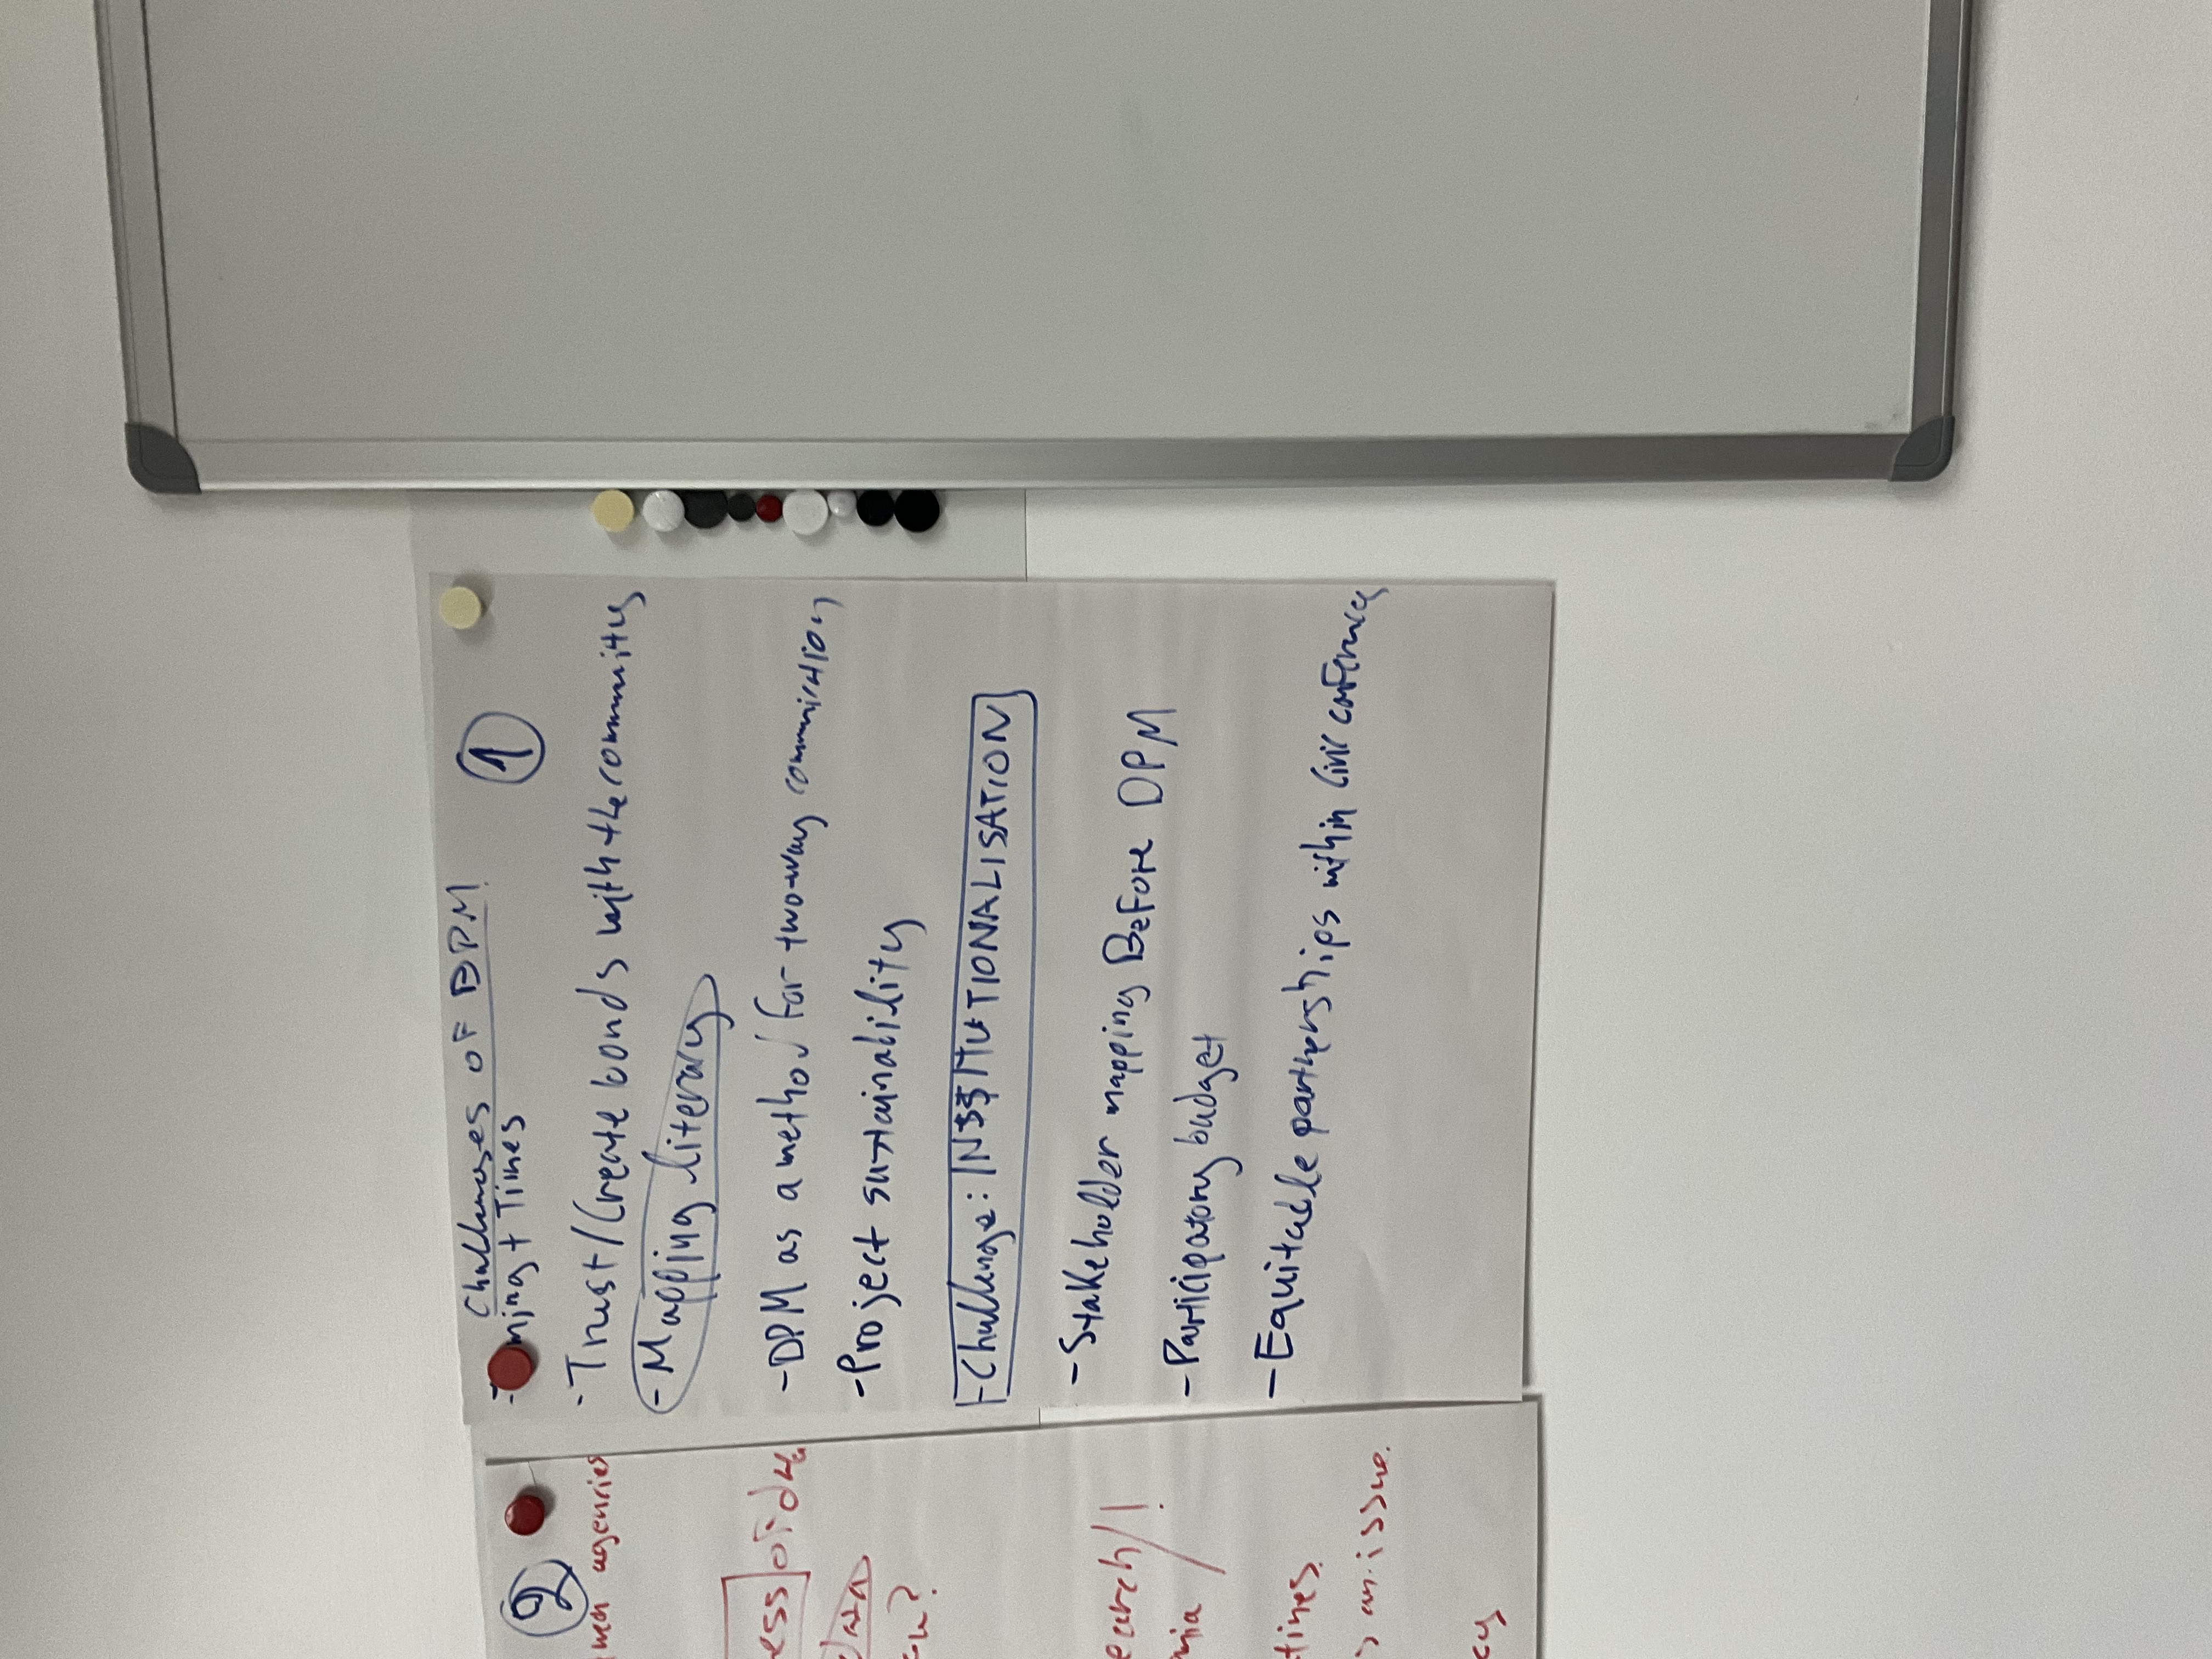 Challenges of DPM
①
ming + Times
- Trust / Create bonds with the community
- Mapping literacy
- DPM as a method for two-way communication
- Project sustainability
- Challenge: INSTITUTIONALISATION
- Stakeholder mapping Before DPM
- Participatory budget
- Equitable partnerships within Civic
②
agencies
ess
data
earch/!
mia
times.
an issue.
cy